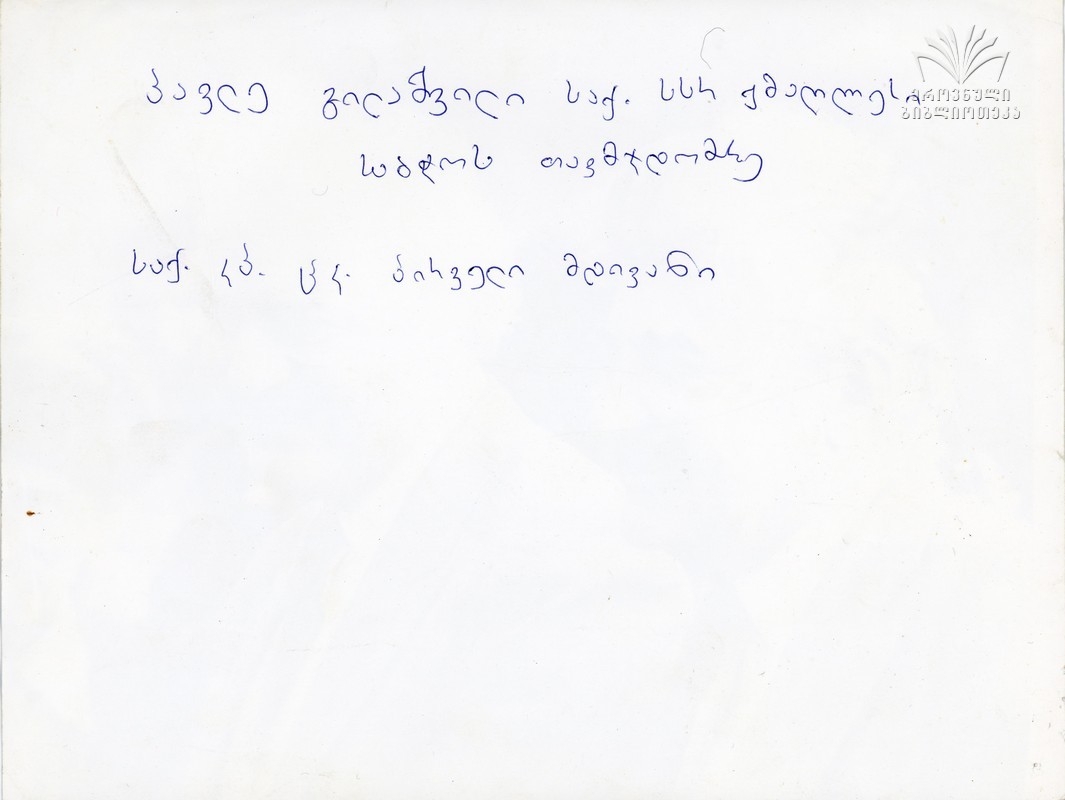 პავლე გილაშვილი საქ. სსრ უმაღლესი
საბჭოს თავმჯდომრე
საქ. კპ. ცკ. პირველი მდივანი
ეროვნული
ბიბლიოთეკა